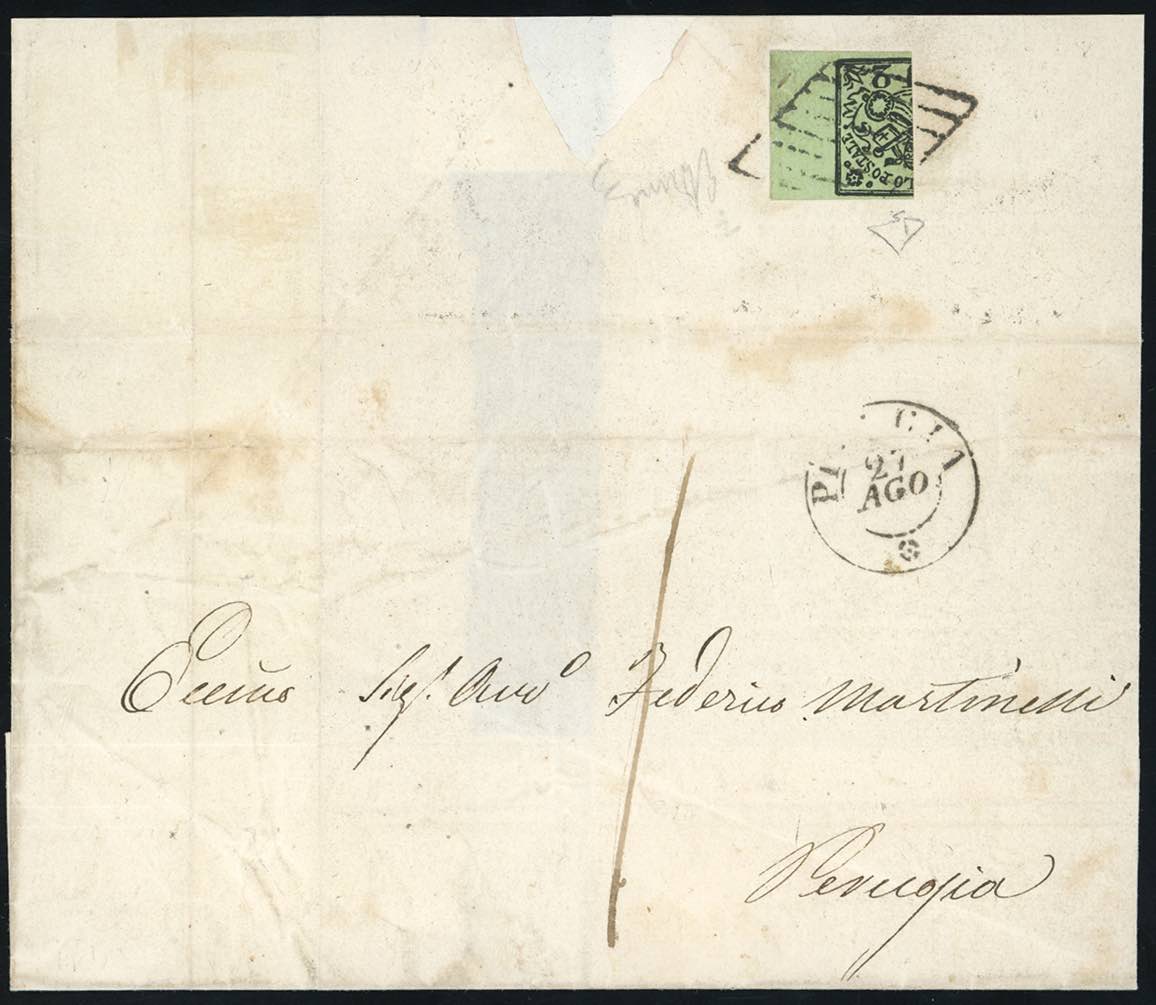 2
LO POSTALE
27
AGO
Eccmo Sigr. Avvo Federico Martinelli
Perugia